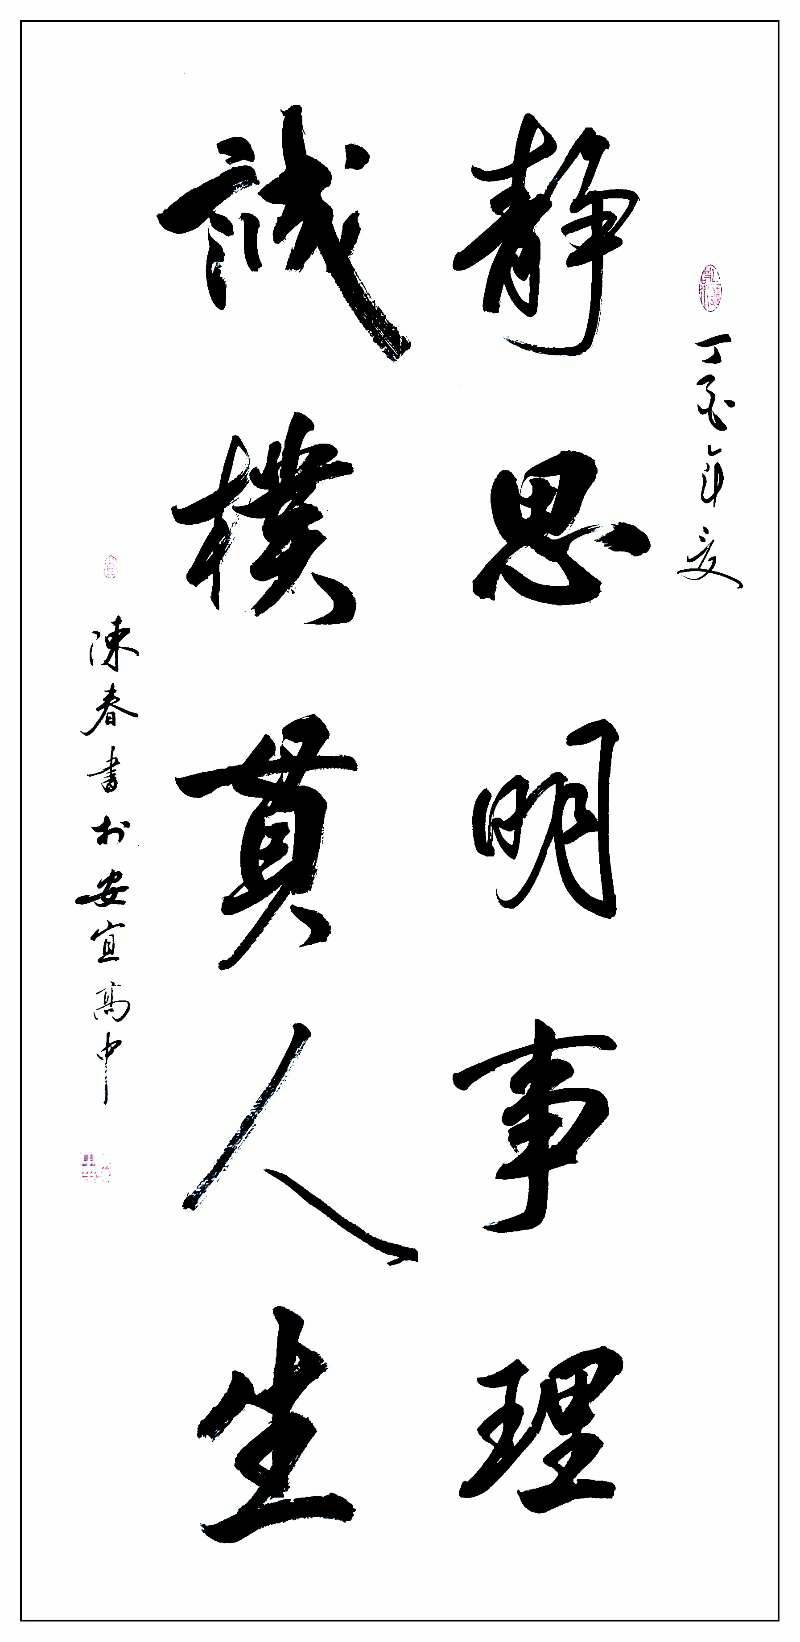 丁亥年夏
静思明事理
誠樸貫人生
陳春書於安宜高中